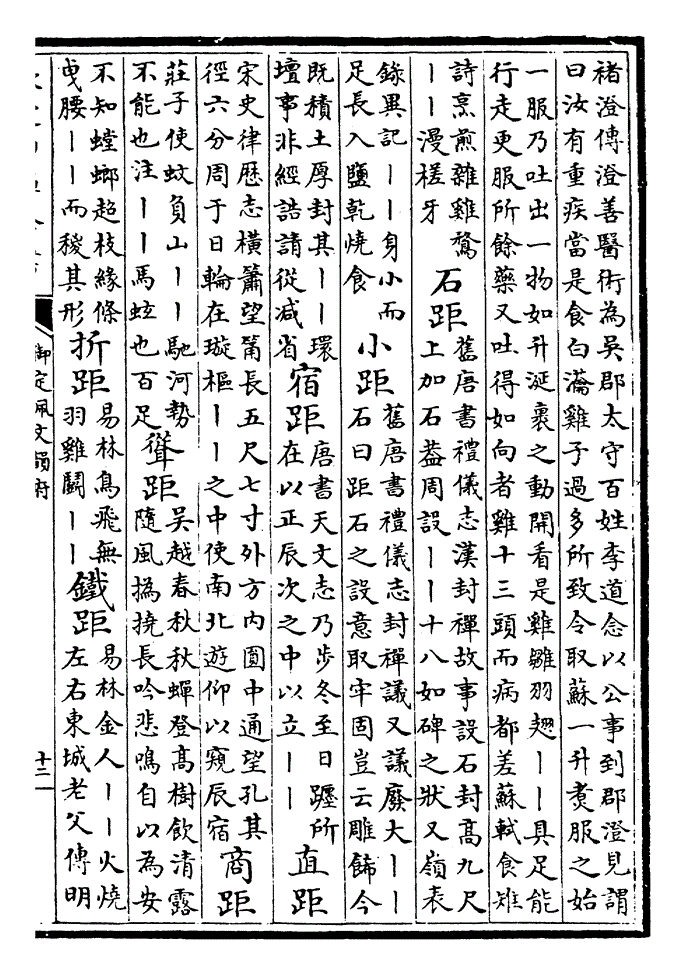 褚澄傳澄善醫術為吳郡太守百姓李道念以公事到郡澄見謂
曰汝有重疾當是食白瀹雞子過多所致令取蘇一升煑服之始
一服乃吐出一物如升涎裹之動開看是雞雛羽翅丨丨具足能
行走更服所餘藥又吐得如向者雞十三頭而病都差蘇軾食雉
詩烹煎雜雞鶩
丨丨漫槎牙
石距
舊唐書禮儀志漢封禪故事設石封高九尺
上加石葢周設丨丨十八如碑之狀又嶺表
錄異記丨丨身小而
足長入鹽乾燒食
小距
舊唐書禮儀志封禪議又議廢大丨丨
石曰距石之設意取牢固豈云雕飾今
既積土厚封其丨丨環
壇事非經誥請從減省
宿距
唐書天文志乃步冬至日躔所
在以正辰次之中以立丨丨
直距
宋史律歷志橫簫望筩長五尺七寸外方內圓中通望孔其
徑六分周于日輪在璇樞丨丨之中使南北遊仰以窺辰宿
商距
莊子使蚊負山丨丨馳河勢
不能也注丨丨馬蚿也百足
聳距
吳越春秋秋蟬登高樹飲清露
隨風撝撓長吟悲鳴自以為安
不知螳螂超枝緣條
曵腰丨丨而稷其形
折距
易林鳥飛無
羽雞鬭丨丨
鐵距
易林金人丨丨火燒
左右東城老父傳明
御定佩文韻府
十二